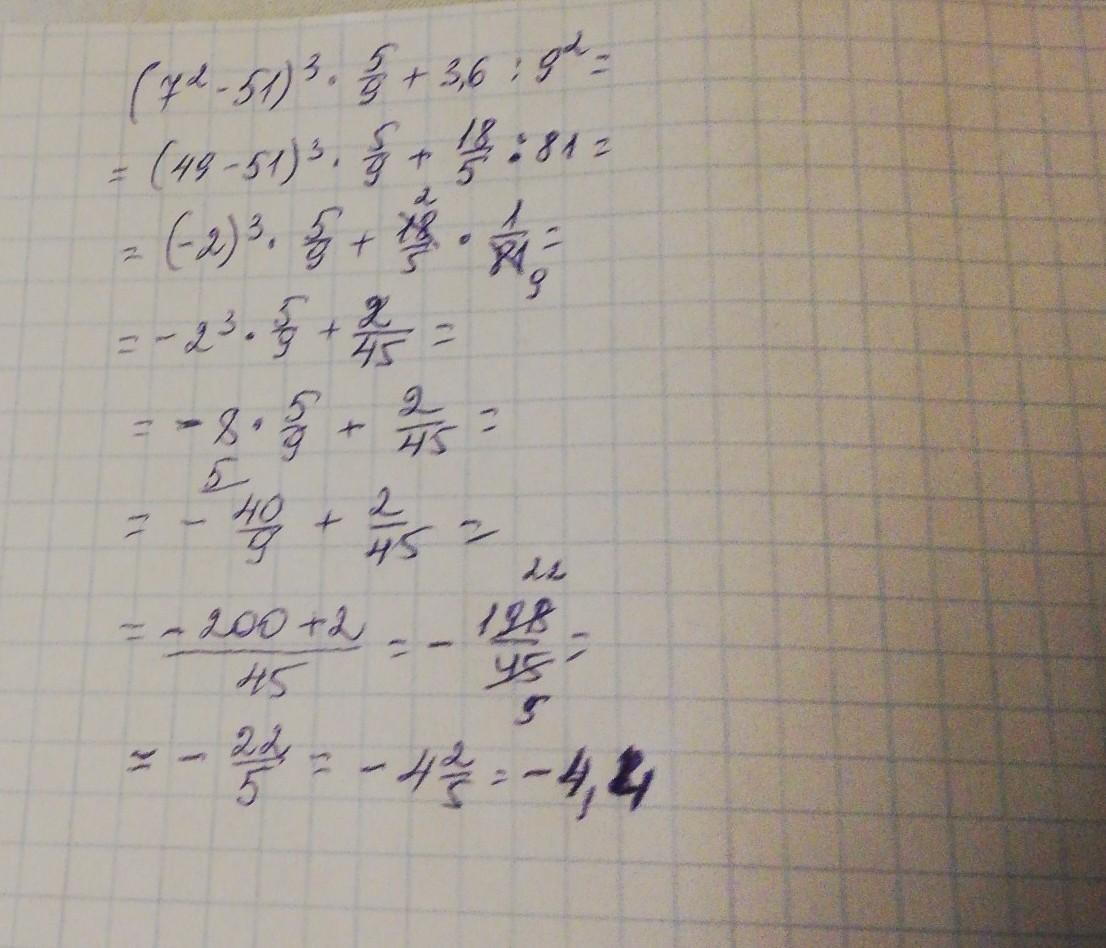 (7² - 51)³ · 5/9 + 3,6 : 9² =
= (49 - 51)³ · 5/9 + 18/5 : 81 =
2
= (-2)³ · 5/9 + 18/5 · 1/81 =
9
= -2³ · 5/9 + 2/45 =
= -8 · 5/9 + 2/45 =
5
= - 40/9 + 2/45 =
22
= (-200+2)/45 = - 198/45 =
5
= - 22/5 = - 4 2/5 = -4,4